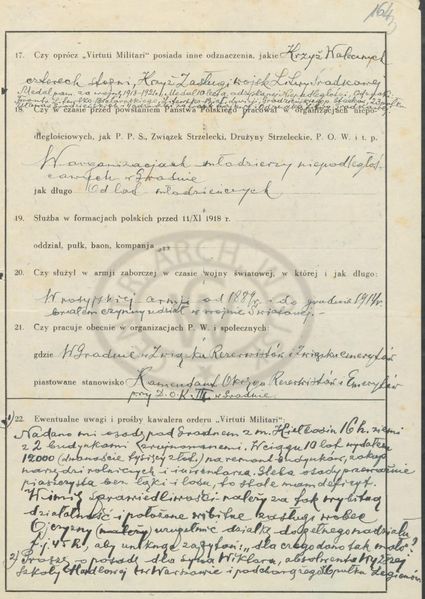 17. Czy oprócz „Virtuti Militari" posiada inne odznaczenia, jakie Krzyż Walecznych
czterech Krzyż Zasługi wojsk Litwy Środkowej
Medal pam. za wojnę 1918-1921 r., Medal 10 lecia Niepodległości,
Frontu Litewsko Białoruskiego
18. Czy w czasie przed powstaniem Państwa Polskiego pracował w organizacjach niepo-
dległościowych, jak P. P. S., Związek Strzelecki, Drużyny Strzeleckie, P. O. W. i t. p.
W organizacjach młodzieży niepodległoś-
ciowych w Grodnie
jak długo Od lat młodzieńczych
19. Służba w formacjach polskich przed 11/XI 1918 r.
oddział, pułk, baon, kompanja
20. Czy służył w armji zaborczej w czasie wojny światowej, w której i jak długo:
W rosyjskiej armji od 1889 r. do grudnia 1917 r.
brałem czynny udział w wojnie światowej.
21. Czy pracuje obecnie w organizacjach P. W. i społecznych:
gdzie W Grodnie w Związku Rezerwistów i Związku emerytów
piastowane stanowisko Komendant Okręgu Rezerwistów i Emerytów
przy D.O.K. III w Grodnie
22. Ewentualne uwagi i prośby kawalera orderu „Virtuti Militari"
1) Nadano mi osadę pod Grodnem z m. 16 h. ziemi
z 2 budynkami W ciągu 10 lat wydałem
12000 (dwanaście tysięcy złot.) na remont budynków, zakup
narzędzi rolniczych i inwentarza. Gleba osady przeważnie
piaszczysta bez łąki i lasu, to stale mam deficyt.
W imię sprawiedliwości należy za tak wybitną
działalność i położone wybitne zasługi wobec
Ojczyzny uzupełnić działkę do pełnego nadziału
aby uniknąć zapytań: „dla czego dano tak mało"?
2) Proszę o posadę dla syna Wiktora, absolwenta Wyższej
Szkoły Handlowej w Warszawie i podchorążego pułku Legionów